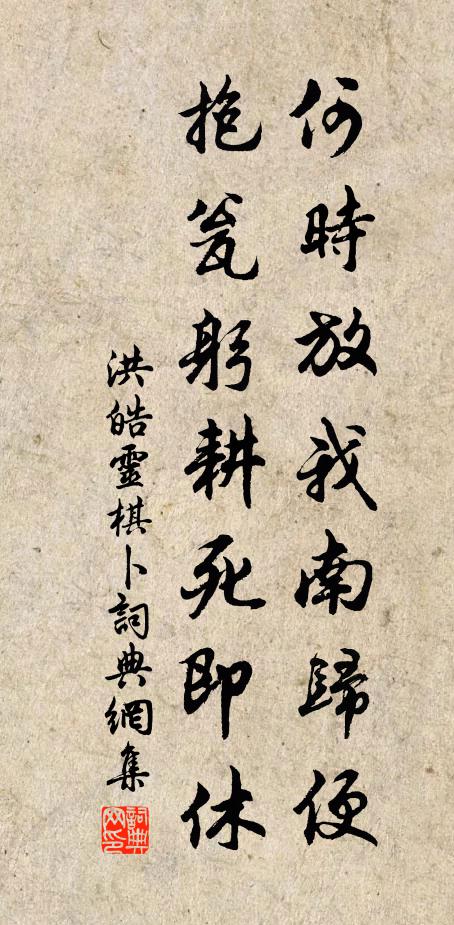 何時放我南歸便
抱瓮躬耕死即休
洪皓靈棋卜詞典網集
詞典網印